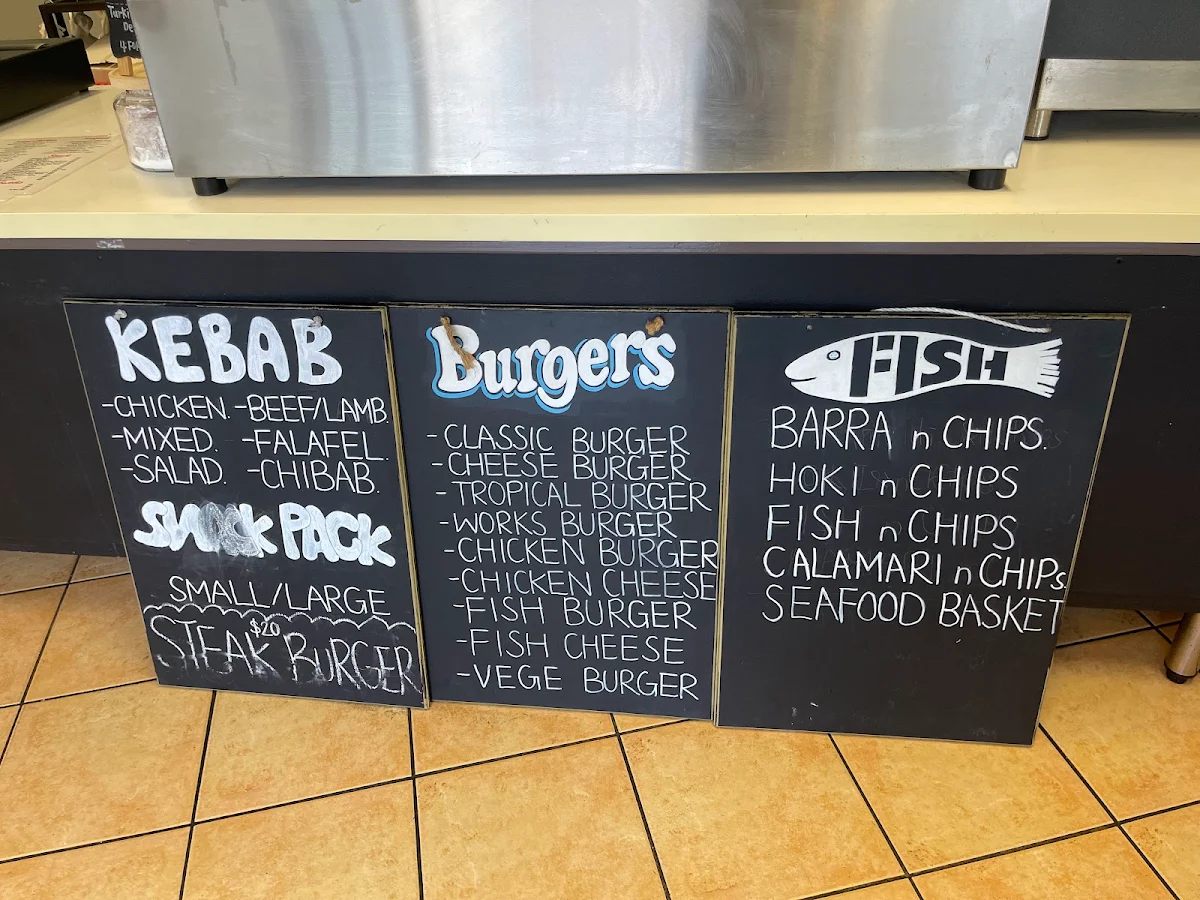 KEBAB
-CHICKEN. -BEEF/LAMB.
-MIXED. -FALAFEL.
-SALAD. -CHIBAB.
SNACK PACK
SMALL/LARGE
$20
STEAK BURGER
Burgers
-CLASSIC BURGER
-CHEESE BURGER
-TROPICAL BURGER
-WORKS BURGER
-CHICKEN BURGER
-CHICKEN CHEESE
-FISH BURGER
-FISH CHEESE
-VEGE BURGER
FISH
BARRA n CHIPS.
HOKI n CHIPS
FISH n CHIPS
CALAMARI n CHIPs
SEAFOOD BASKET